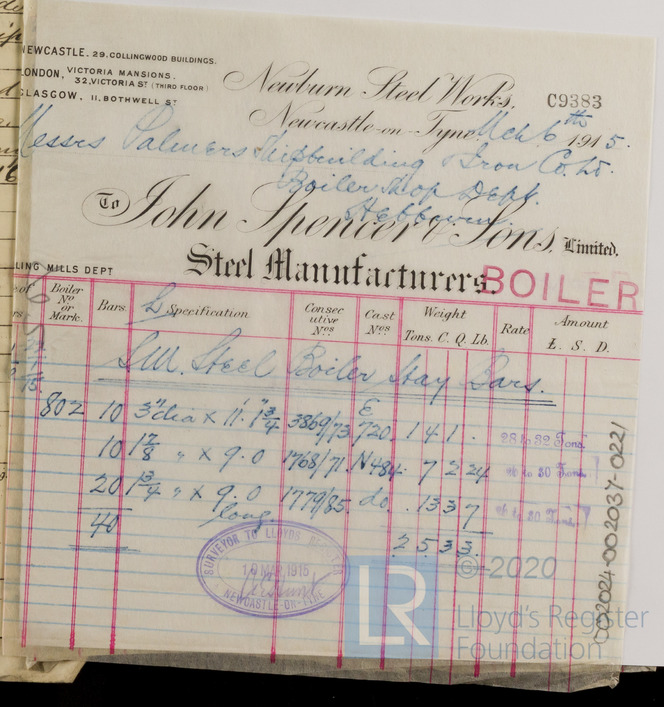 NEWCASTLE. 29. COLLINGWOOD BUILDINGS.
LONDON, VICTORIA MANSIONS.
32, VICTORIA ST (THIRD FLOOR)
GLASGOW, 11. BOTHWELL ST
Newburn Steel Works,
C9383
Newcastle-on-Tyne Mch 6th 1915.
Messrs Palmers Shipbuilding & Iron Co. Ld.
Boiler Shop Dept.
Hebburn
To John Spencer & Sons, Limited.
Steel Manufacturers.
LING MILLS DEPT
BOILER
Boiler No or Mark. Bars. Specification Consecutive Nos Cast Nos Weight Tons. C. Q. Lb. Rate Amount £. S. D.
S.M. Steel Boiler Stay Bars.
802 10 3" dia x 11'. 1 3/4 3869/73 E 720. 1 4 1 . 28 to 32 Tons.
10 1 7/8 " x 9. 0 1768/71 N484. 7 2 24 26 to 30 Tons.
20 1 3/4 " x 9. 0 1779/85 do. 13 3 7 26 to 30 Tons.
long
40
2 5 3 3.
SURVEYOR TO LLOYDS REGISTER
10 MAR 1915
NEWCASTLE-ON-TYNE
LR
© 2020
Lloyd's Register
Foundation
002024-002037-0221